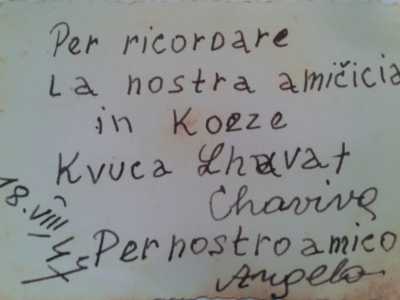 Per ricordare
La nostra amičicia
in Koeze
Kvuca Lhavat
Chaviva
18.VIII
Per nostro amico
Angelo